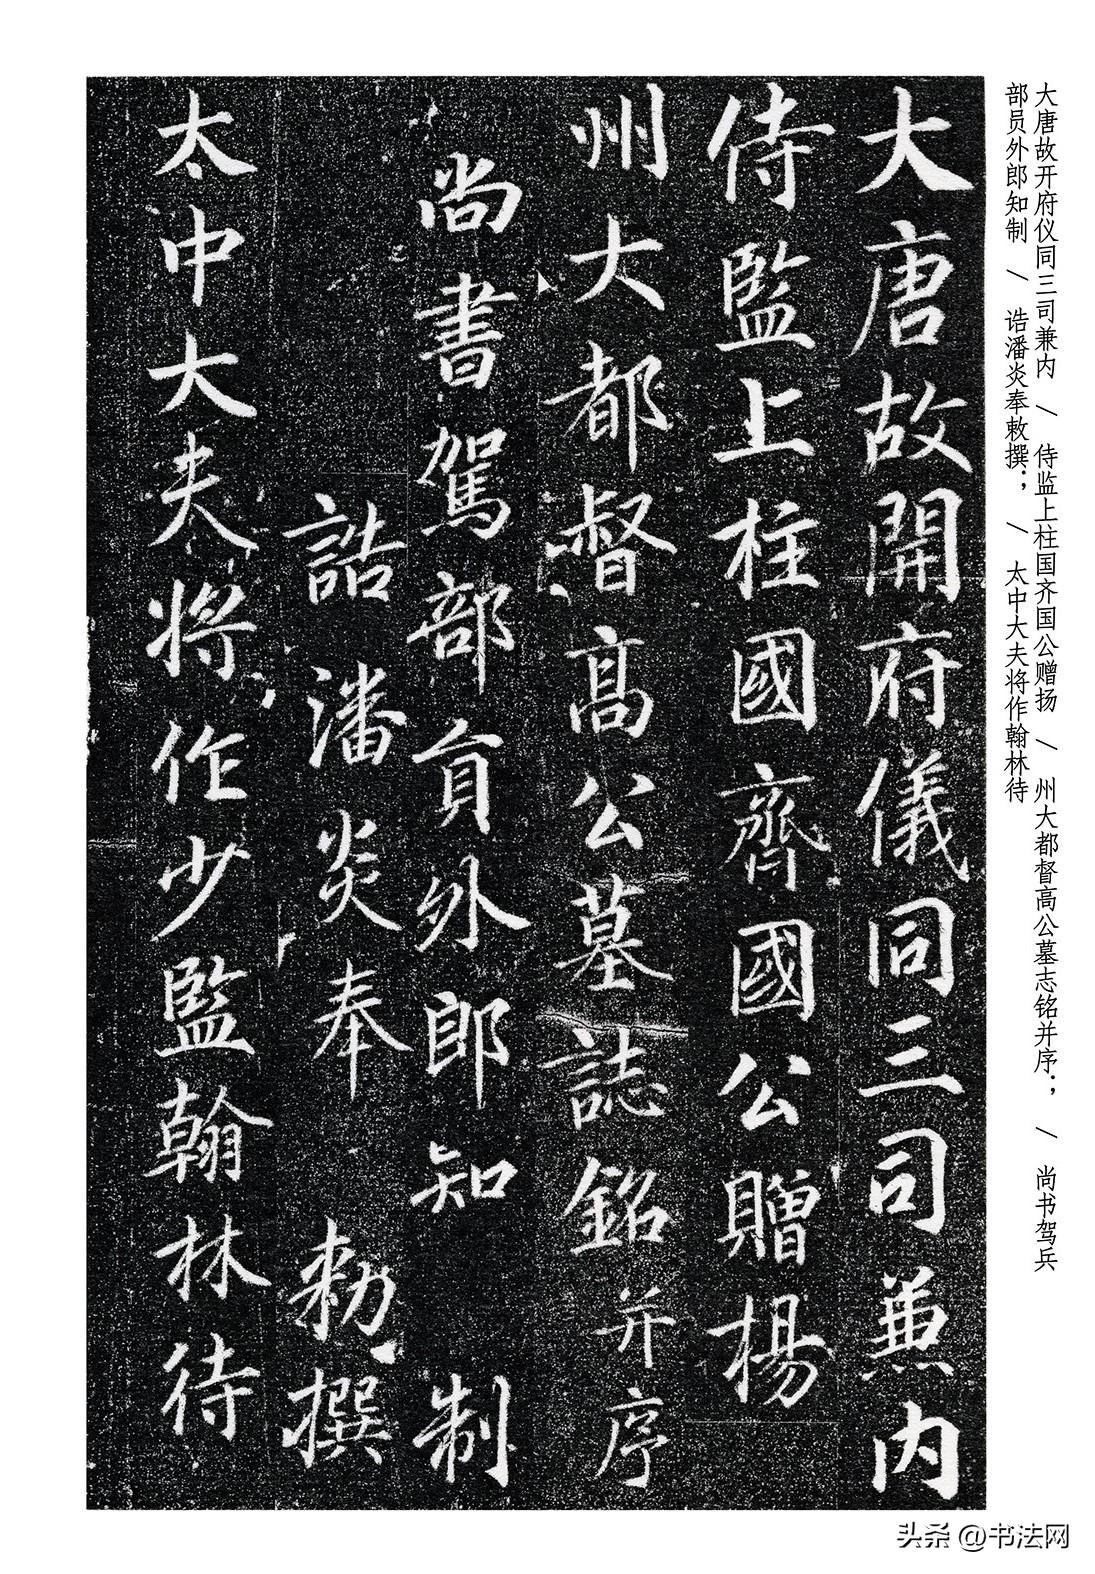 大唐故开府仪同三司兼内 / 侍监上柱国齐国公赠扬 / 州大都督高公墓志铭并序； / 尚书驾兵
部员外郎知制 / 诰潘炎奉敕撰； / 太中大夫将作翰林待
大唐故開府儀同三司兼内
侍監上柱國齊國公贈楊
州大都督高公墓誌銘并序
尚書駕部員外郎知制
誥潘炎奉敕撰
太中大夫將作少監翰林待
头条 @书法网